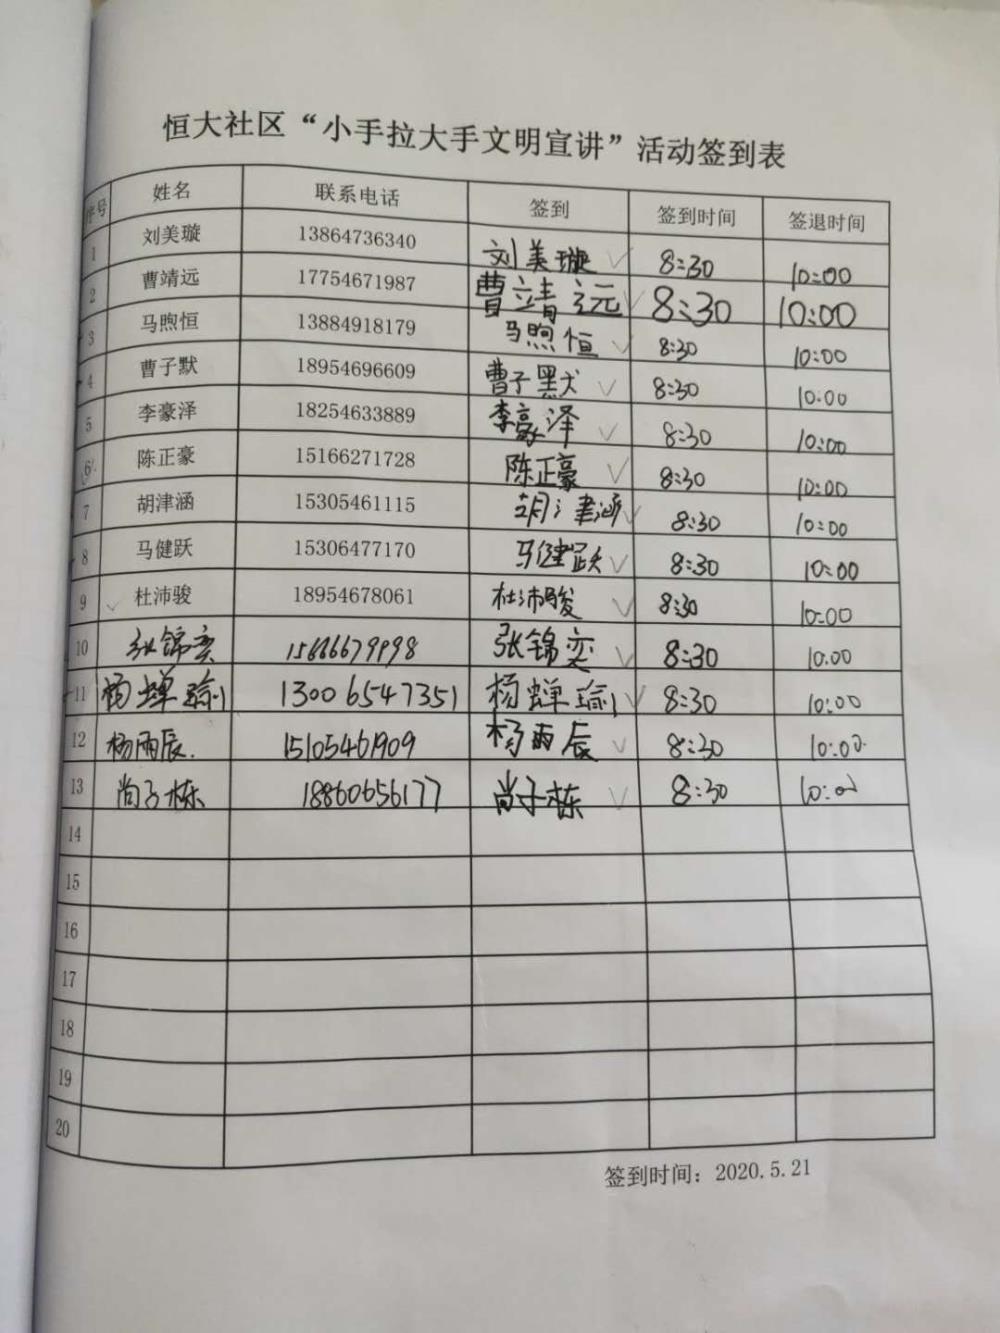 恒大社区“小手拉大手文明宣讲”活动签到表
序号 姓名 联系电话 签到 签到时间 签退时间
1 刘美璇 13864736340 刘美璇 8:30 10:00
2 曹靖远 17754671987 曹靖远 8:30 10:00
3 马煦恒 13884918179 马煦恒 8:30 10:00
4 曹子默 18954696609 曹子默 8:30 10:00
5 李豪泽 18254633889 李豪泽 8:30 10:00
6 陈正豪 15166271728 陈正豪 8:30 10:00
7 胡津涵 15305461115 胡津涵 8:30 10:00
8 马健跃 15306477170 马健跃 8:30 10:00
9 杜沛骏 18954678061 杜沛骏 8:30 10:00
10 张锦奕 张锦奕 8:30 10:00
11 杨蝉瑜 13006547351 杨蝉瑜 8:30 10:00
12 杨雨辰. 15105461909 杨雨辰 8:30 10:00
13 尚子栋 18860656177 尚子栋 8:30 10:00
14
15
16
17
18
19
20
签到时间：2020.5.21